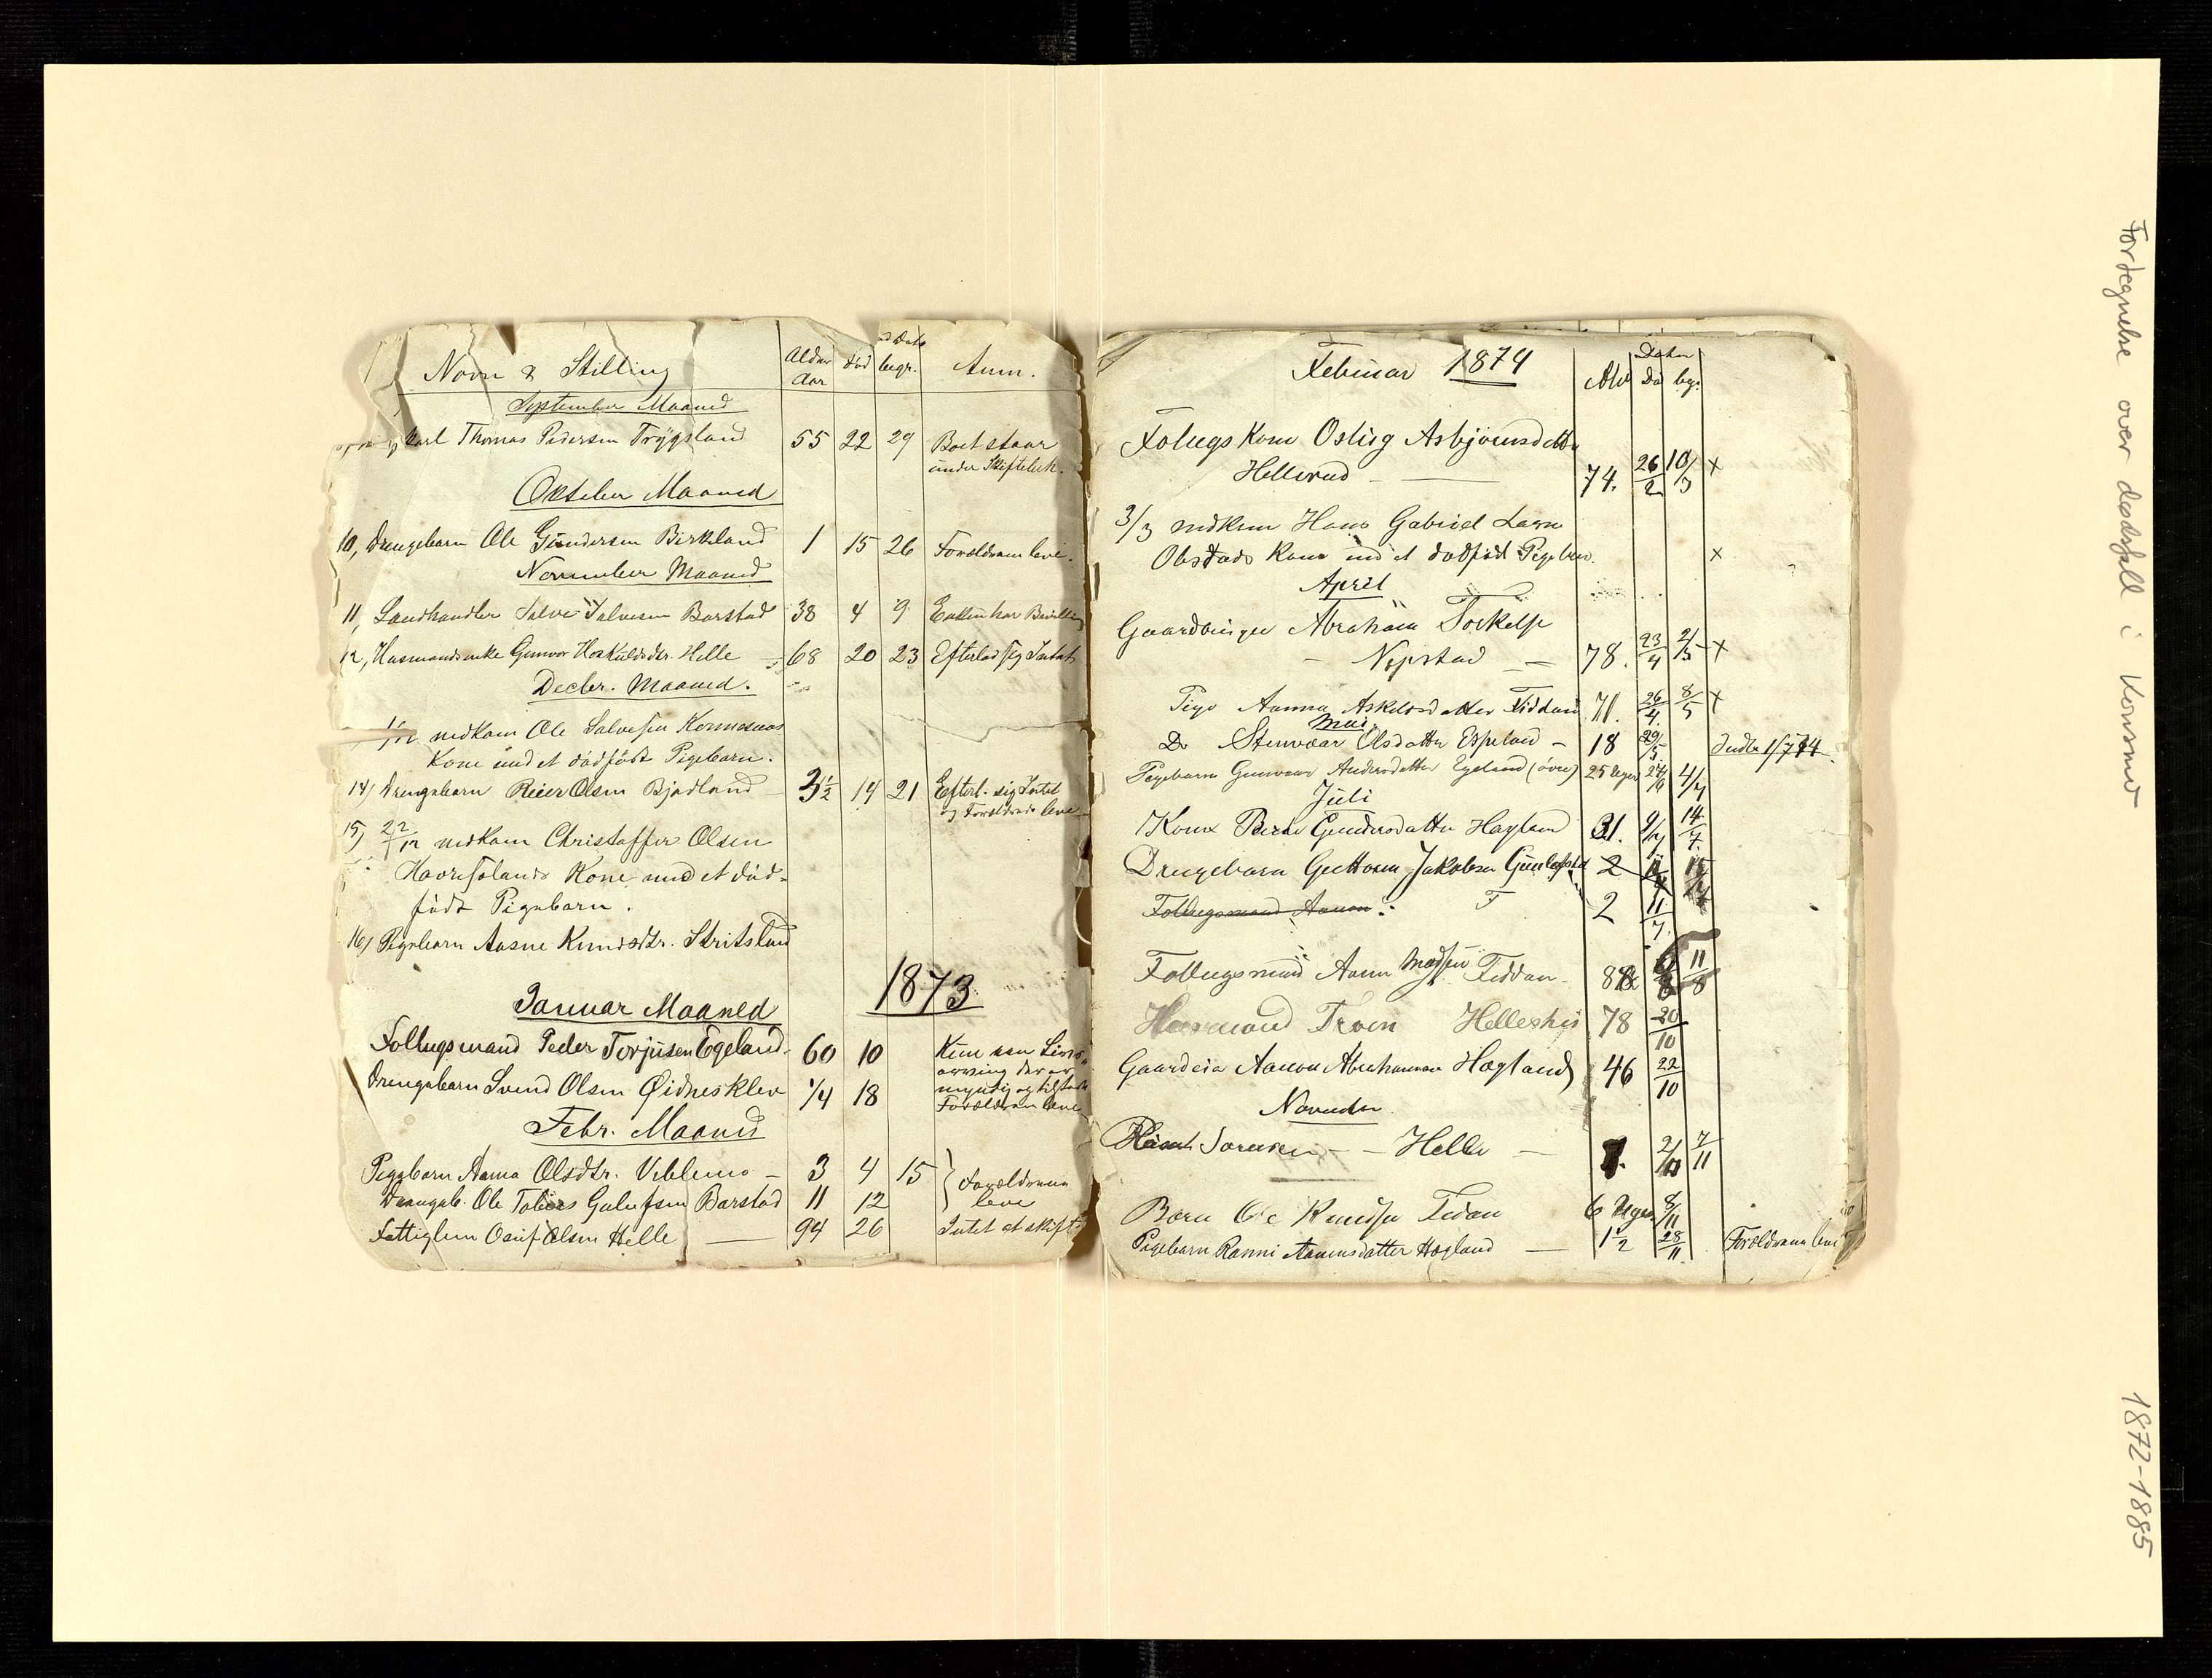 Navn & Stilling Alder Aar død begr. Anm.
September Maaned
Karl Thomas Pedersen Trygsland 55 22 29 Boet staar
under Skiftebeh.
Oktober Maaned
10, Drengebarn Ole Gundersen Birkland 1 15 26 Forældrene leve.
November Maaned
11, Landhandler Salve Salvesen Barstad 38 4 9 Enken har Bevilling
12, Husmandsenke Gunvor Hoskuldsdtr. Helle 68 20 23 Efterlod sig Intet
Decbr. Maaned.
1/12 nedkom Ole Salvesen
Kone med et dødfødt Pigebarn.
14) Drengebarn Reier Olsen Bjadland 3 1/2 14 21 Efterl. sig Intet
og Forældrene leve
15) 22/12 nedkom Christoffer Olsen
Kone med et død-
født Pigebarn.
16) Pigebarn Aasne Knudsdtr. Stritsland
1873
Januar Maaned
Follugsmand Peder Torjusen Egeland 60 10 Kun een Livs-
arving der er
Drengebarn Svend Olsen Øidnesklev 1/4 18 myndig og tilstede
Forældrene leve
Febr. Maaned
Pigebarn Anna Olsdtr. Veblemo - 3 4 15 } Forældrene
Drengeb. Ole Tobias Gulufsen Barstad 11 12 leve
Fattiglem Osuf Olsen Helle 94 26 Intet at skifte
Februar 1874 Alder Daten
dø begr.
Follugs Kone Oslug Asbjørnsdatter
Hellerud - 74. 26/2 10/3 x
3/3 nedkom Hans Gabriel Larsen
Obstads Kone med et dødfødt Pigebarn. x
April
Gaardbruger Abraham Torkelse
- Nepstad - 78. 23/4 2/5 x
Pige Aanna Askelsdatter Fiddan 71. 26/4 8/5 x
Mai.
Do Stenvaar Olsdatter Espeland - 18 29/5 Indb 1/7 74
Pigebarn Gunvaar Andersdatter Egeland (øvre) 25 Uger 24/6 4/7
Juli
Kone Berte Gundersdatter Hagland 31. 9/7 14/7
Drengebarn Guttorm Jakobsen 2
Follugsmand Aanen F 2 11/7
Follugsmand Aanen Madsen Fiddan - 11/8
Husmand Troen 78 20/10
Gaardeier Aanon Abrahamsen Hagland 46 22/10
November
Sorensen - - Helle - 2/11 7/11
Barn Ole Knudsen Fidan 6 Uger 8/11
Pigebarn Ranni Aanensdatter Hagland - 1 1/2 28/11 Forældrene leve
Fortegnelse over dødsfall i Konsmo
1872-1885